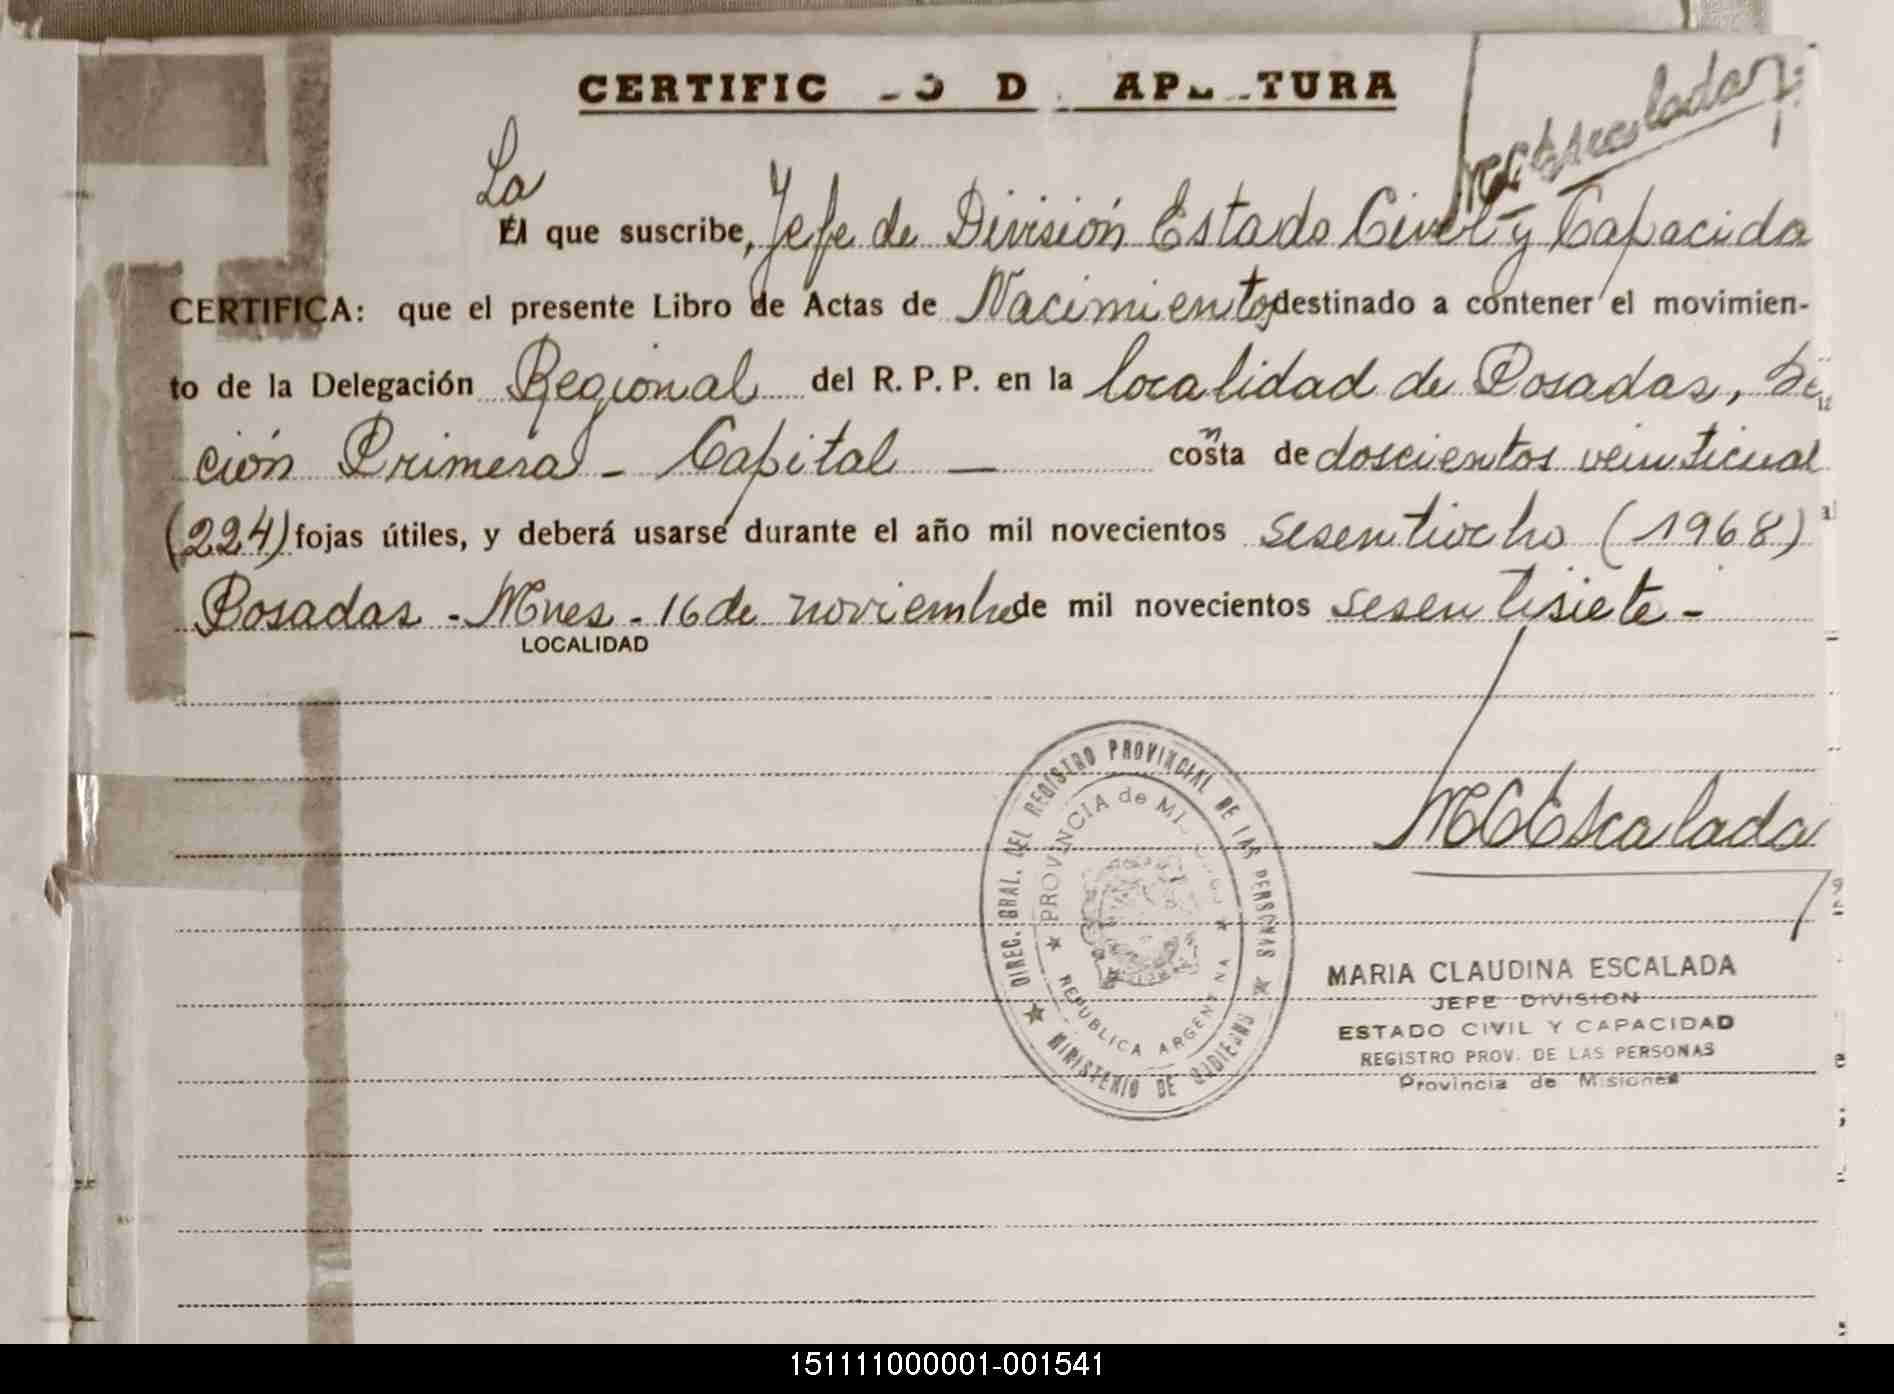 CERTIFIC O D APE TURA
MCEscalada
La
El que suscribe, Jefe de División Estado Civil y Capacida
CERTIFICA: que el presente Libro de Actas de Nacimientos destinado a contener el movimien-
to de la Delegación Regional del R. P. P. en la localidad de Posadas, Sec
ción Primera - Capital — consta de doscientos veinticuat
(224) fojas útiles, y deberá usarse durante el año mil novecientos sesentiocho (1968)
Posadas - Mnes - 16 de noviembre de mil novecientos sesentisiete -
LOCALIDAD
MCEscalada
DIREC. GRAL. DEL REGISTRO PROVINCIAL DE LAS PERSONAS
PROVINCIA de MISIONES
REPUBLICA ARGENTINA
MINISTERIO DE GOBIERNO
MARIA CLAUDINA ESCALADA
JEFE DIVISION
ESTADO CIVIL Y CAPACIDAD
REGISTRO PROV. DE LAS PERSONAS
Provincia de Misiones
151111000001-001541